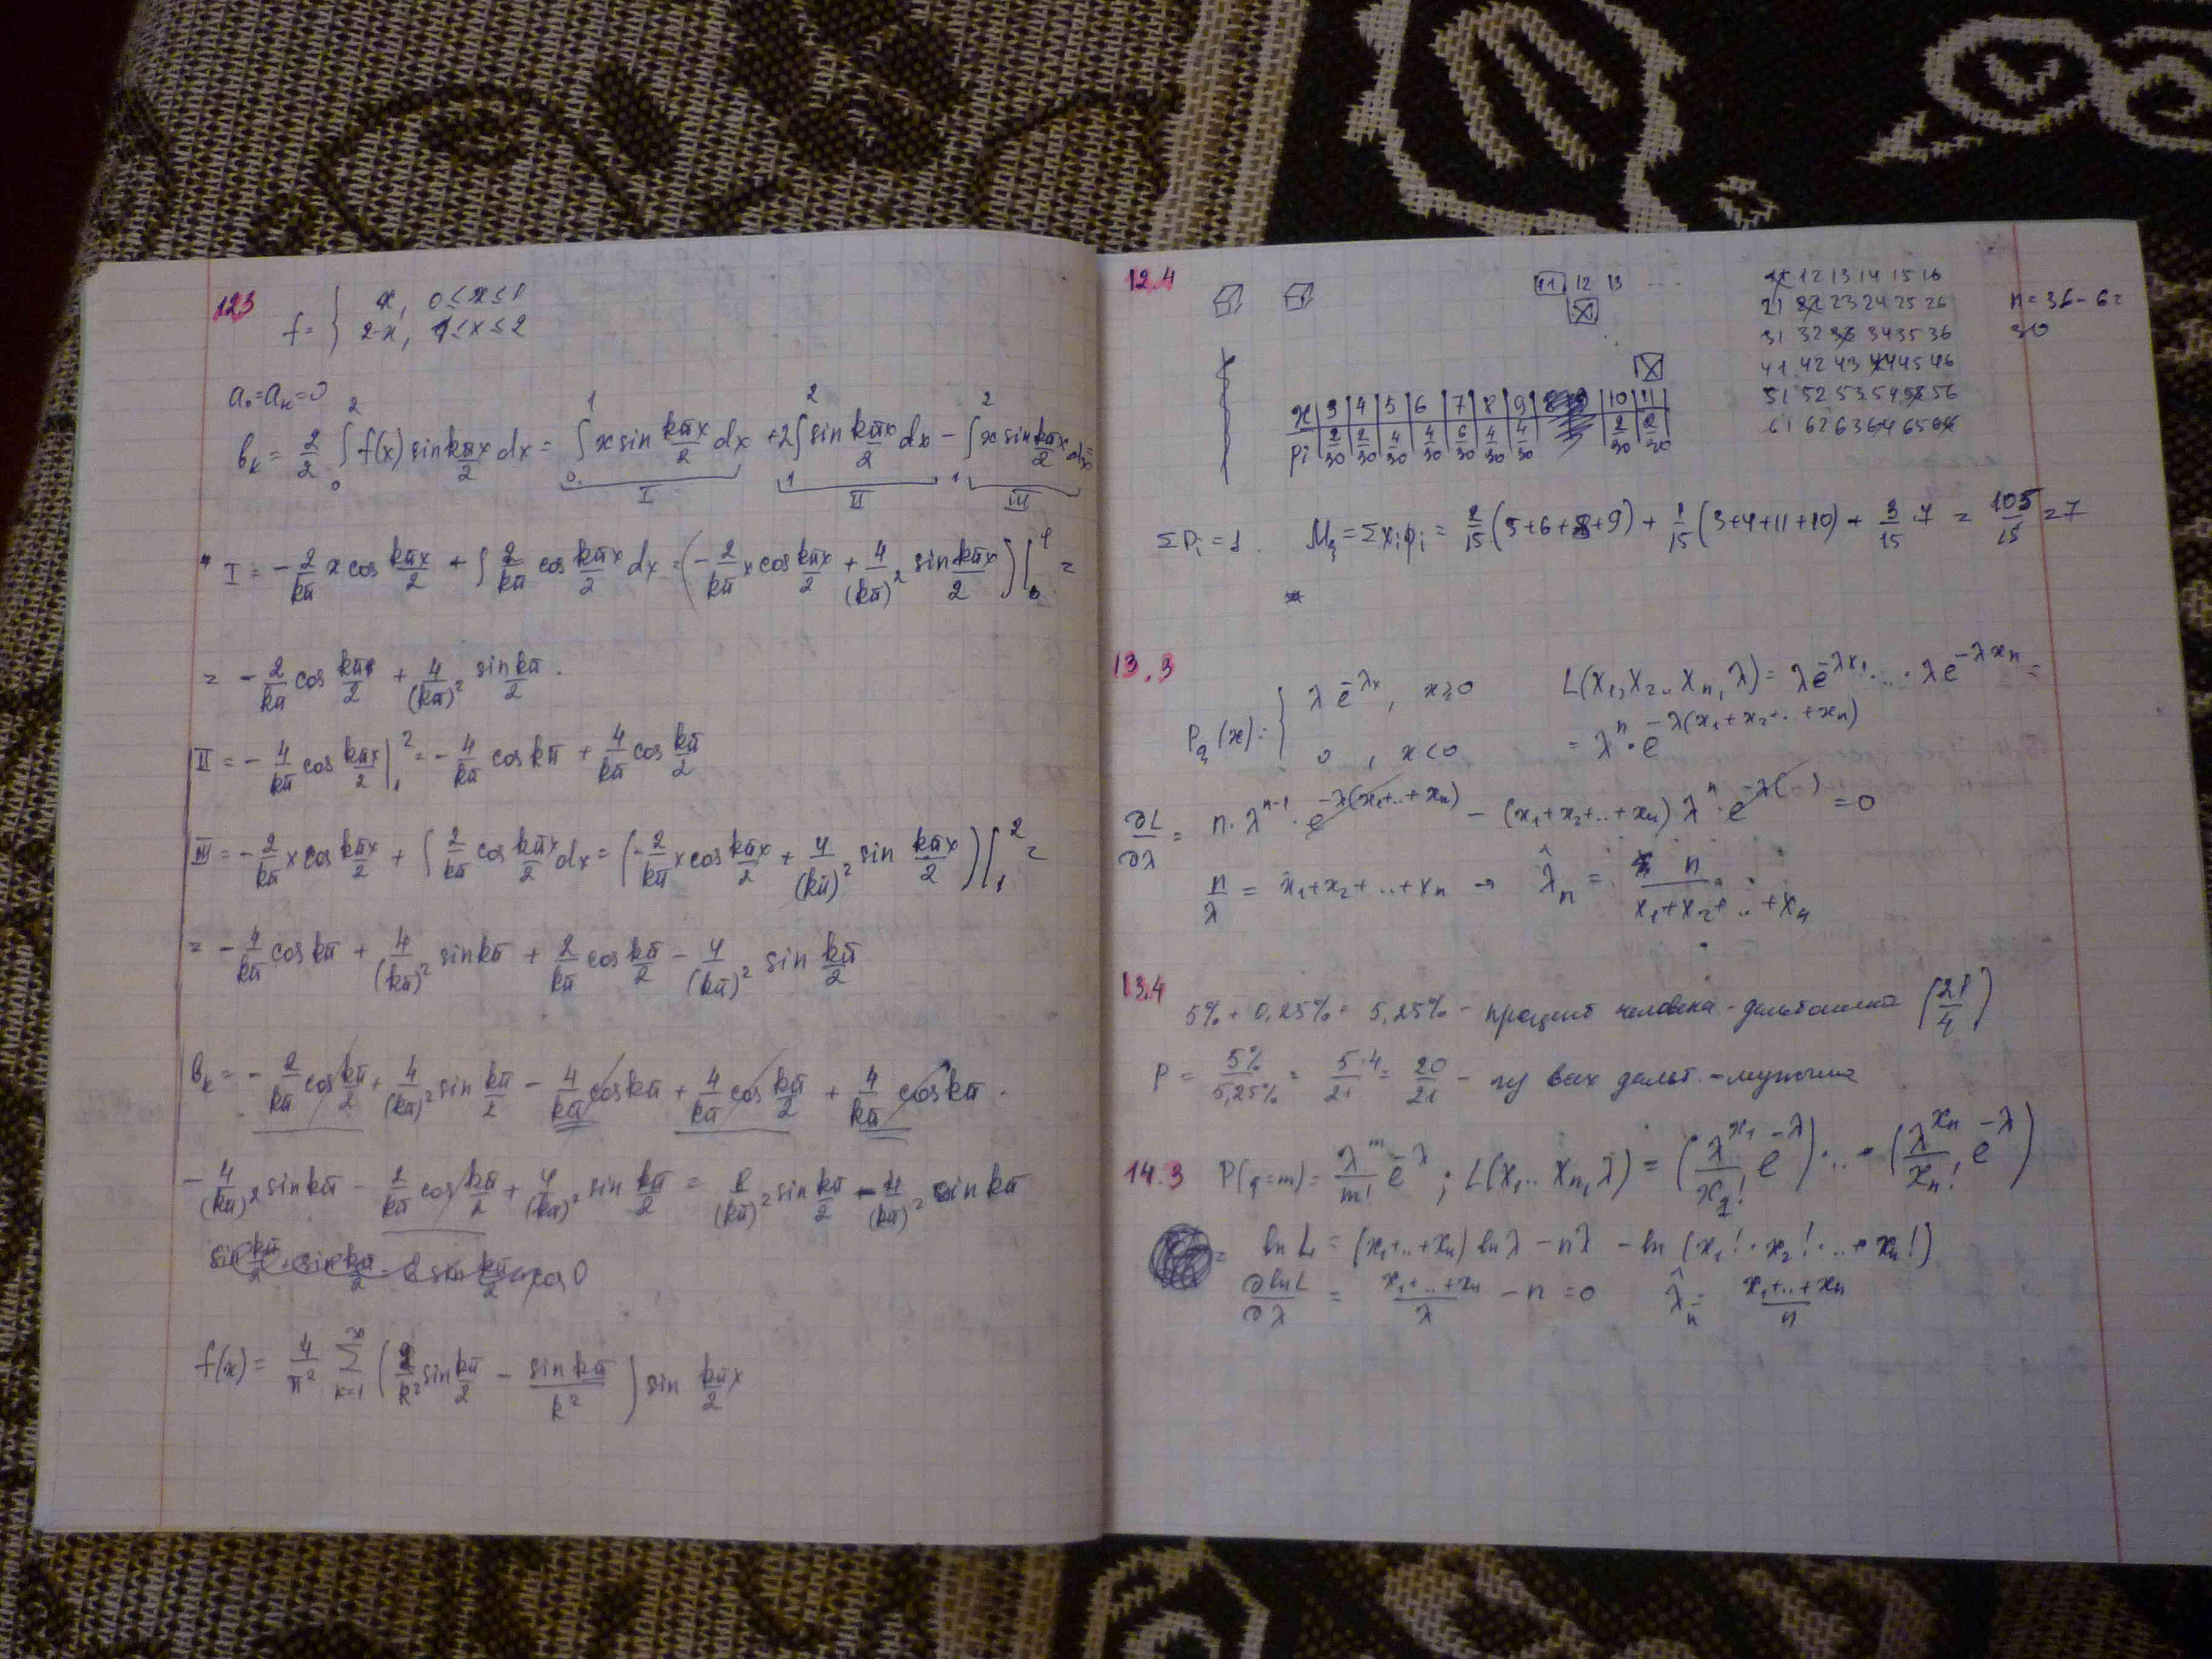 12.3
f = { x, 0 ≤ x ≤ 1
2-x, 1 ≤ x ≤ 2
a₀ = aₖ = 0
bₖ = 2/2 ∫₀² f(x) sin kπx/2 dx = ∫₀¹ x sin kπx/2 dx + 2∫₁² sin kπx/2 dx - ∫₁² x sin kπx/2 dx =
I II III
I = - 2/kπ x cos kπx/2 + ∫ 2/kπ cos kπx/2 dx = (- 2/kπ x cos kπx/2 + 4/(kπ)² sin kπx/2) |₀¹ =
= - 2/kπ cos kπ/2 + 4/(kπ)² sin kπ/2 .
II = - 4/kπ cos kπx/2 |₁² = - 4/kπ cos kπ + 4/kπ cos kπ/2
III = - 2/kπ x cos kπx/2 + ∫ 2/kπ cos kπx/2 dx = (- 2/kπ x cos kπx/2 + 4/(kπ)² sin kπx/2) |₁² =
= - 4/kπ cos kπ + 4/(kπ)² sin kπ + 2/kπ cos kπ/2 - 4/(kπ)² sin kπ/2
bₖ = - 2/kπ cos kπ/2 + 4/(kπ)² sin kπ/2 - 4/kπ cos kπ + 4/kπ cos kπ/2 + 4/kπ cos kπ -
- 4/(kπ)² sin kπ - 2/kπ cos kπ/2 + 4/(kπ)² sin kπ/2 = 8/(kπ)² sin kπ/2 - 4/(kπ)² sin kπ
f(x) = 4/π² Σₖ₌₁^∞ (2/k² sin kπ/2 - sin kπ/k²) sin kπx/2
12.4
11 12 13 ...
11 12 13 14 15 16
21 22 23 24 25 26
31 32 33 34 35 36
41 42 43 44 45 46
51 52 53 54 55 56
61 62 63 64 65 66
n = 36 - 6 =
30
x | 3 | 4 | 5 | 6 | 7 | 8 | 9 | 10 | 11
pi | 2/30 | 2/30 | 4/30 | 4/30 | 6/30 | 4/30 | 4/30 | 2/30 | 2/30
Σpᵢ = 1. Mξ = Σxᵢpᵢ = 2/15 (5+6+8+9) + 1/15 (3+4+11+10) + 3/15 · 7 = 105/15 = 7
13.3
Pξ(x) = { λe^(-λx), x ≥ 0
0, x < 0
L(x₁, x₂.. xₙ, λ) = λe^(-λx₁) · ... · λe^(-λxₙ) =
= λⁿ · e^(-λ(x₁+x₂+..+xₙ))
∂L/∂λ = n · λ^(n-1) · e^(-λ(x₁+..+xₙ)) - (x₁+x₂+..+xₙ) λⁿ · e^(-λ( )) = 0
n/λ = x₁+x₂+..+xₙ → λ̂ₙ = n/(x₁+x₂+..+xₙ)
13.4
5% + 0,25% = 5,25% - процент человека - дальтоника (21/4)
P = 5%/5,25% = 5·4/21 = 20/21 - из всех дальт. - мужчина
14.3
P(ξ=m) = λᵐ/m! e^(-λ) ; L(x₁.. xₙ, λ) = (λ^x₁/x₁! e^(-λ)) · .. · (λ^xₙ/xₙ! e^(-λ))
ln L = (x₁+..+xₙ) ln λ - nλ - ln (x₁! · x₂! · .. · xₙ!)
∂lnL/∂λ = (x₁+..+xₙ)/λ - n = 0 λ̂ₙ = (x₁+..+xₙ)/n